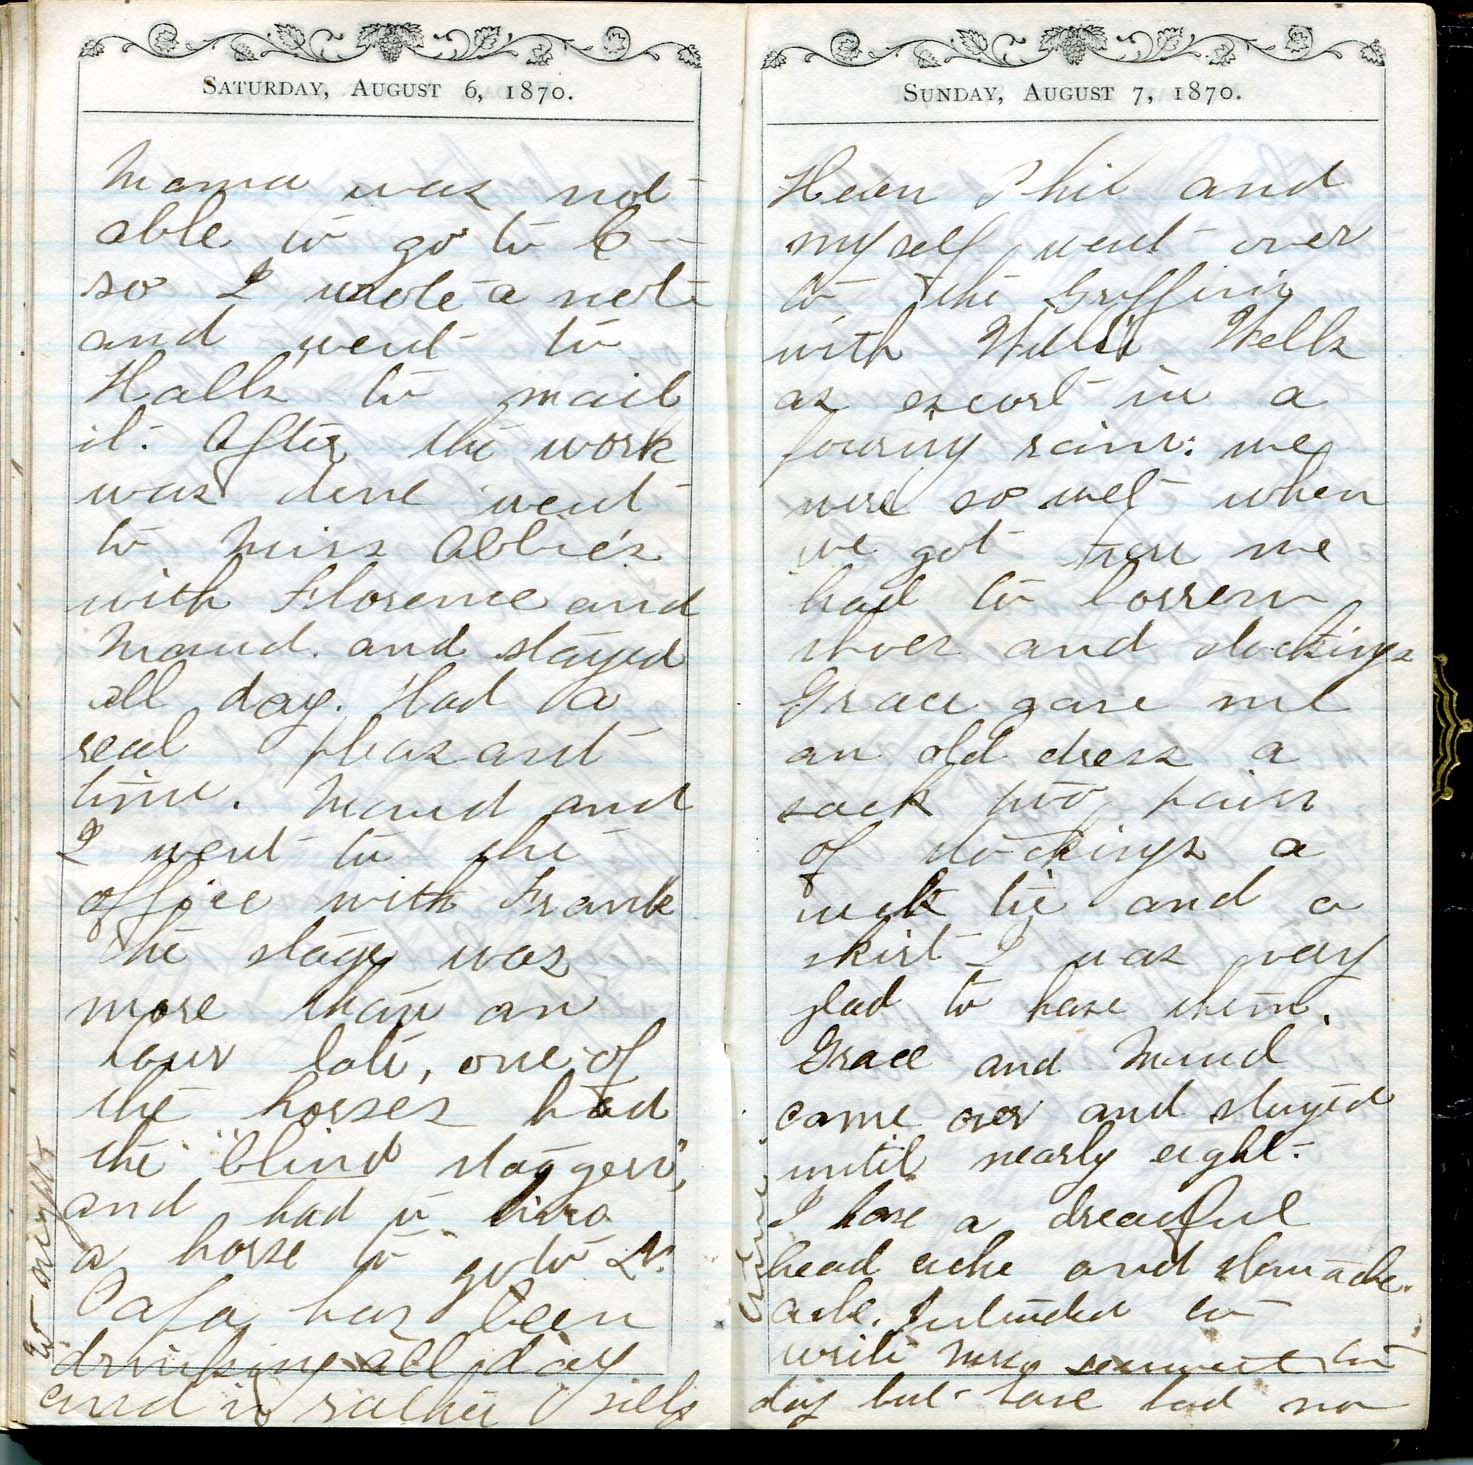 SATURDAY, AUGUST 6, 1870.
Mama was not
able to go to C--
so I wrote a note
and went to
Halls to mail
it. After the work
was done went
to Miss Abbie's
with Florence and
Maud. and stayed
all day. Had a
real pleasant
time. Maud and
I went to the
office with Frank
the stage was
more than an
hour late, one of
the horses had
the "blind staggers",
and had to hire
a horse to go to L.
Papa has been
drinking all day
and is rather silly
to night
SUNDAY, AUGUST 7, 1870.
Helen Phil and
myself went over
to the Griffin's
with Willis Wells
as escort in a
pouring rain: we
were so wet when
we got there we
had to borrow
shoes and stockings
Grace gave me
an old dress a
sack two pairs
of stockings a
neck tie and a
skirt I was very
glad to have them.
Grace and Maud
came over and stayed
until nearly eight.
I have a dreadful
head ache and stomache
ache. Intended to
write to
day but have had no
time.